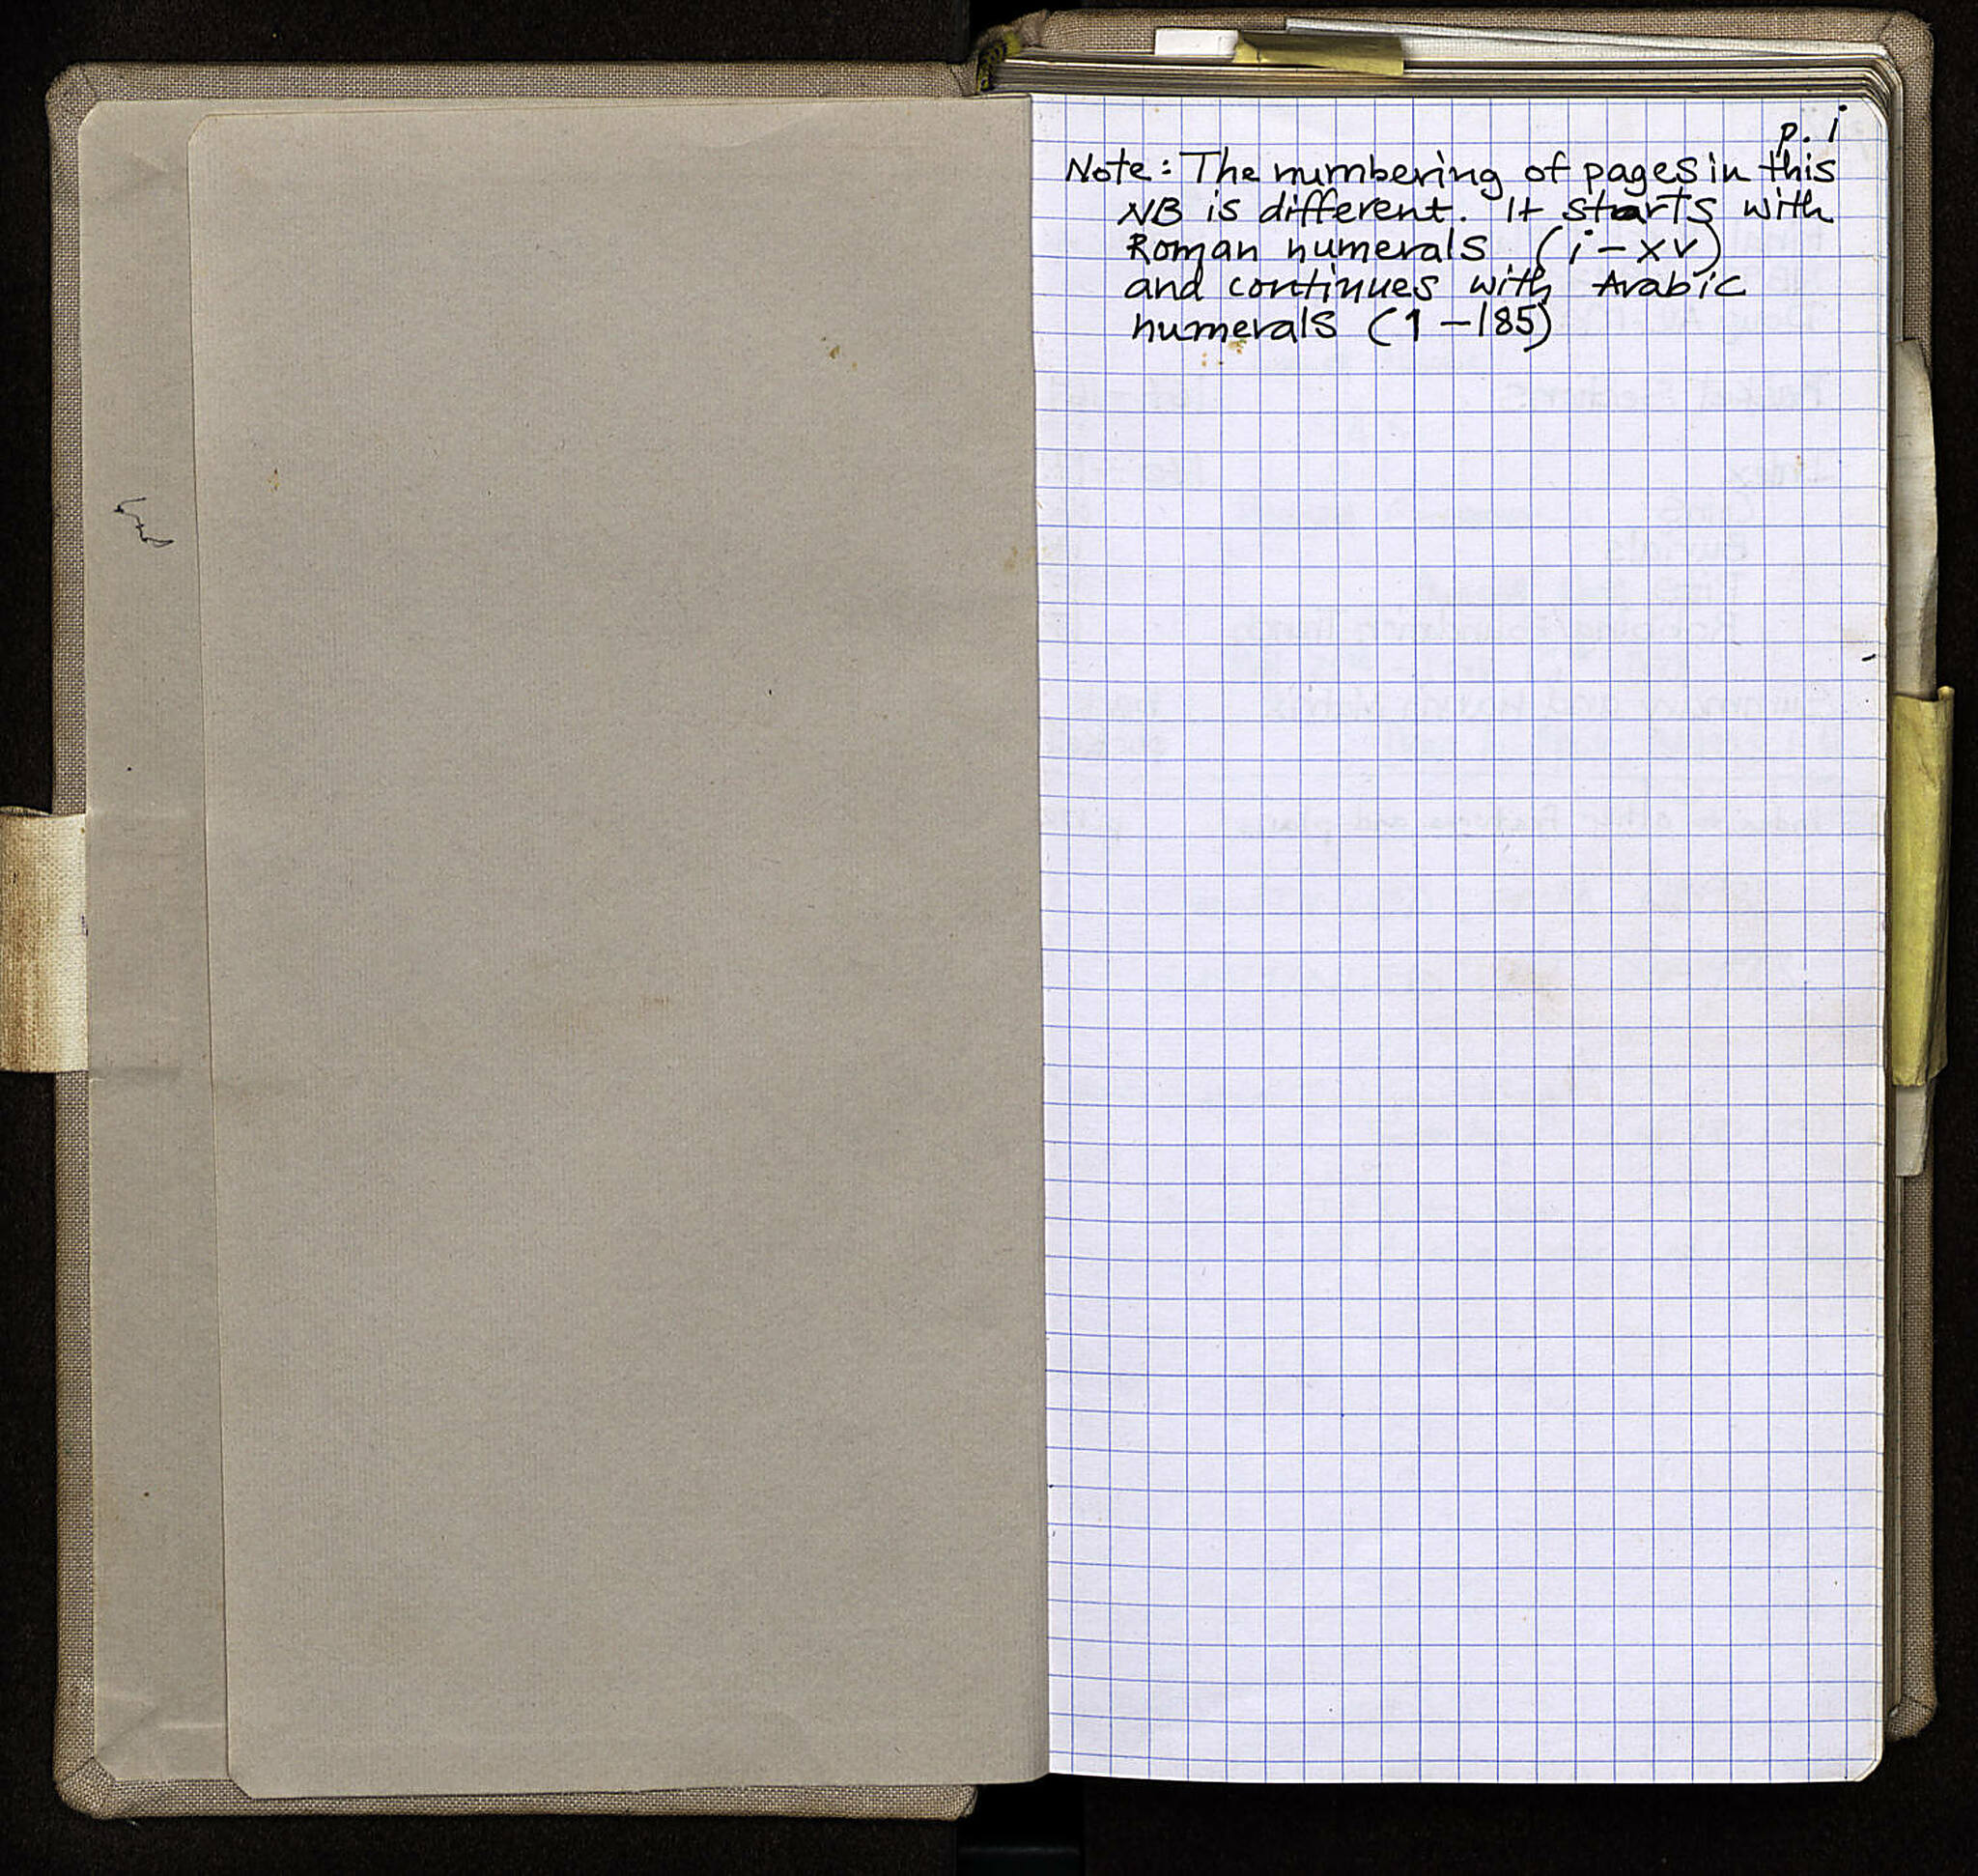 p. i
Note: The numbering of pages in this
NB is different. It starts with
Roman numerals (i – xv)
and continues with Arabic
numerals (1 – 185)